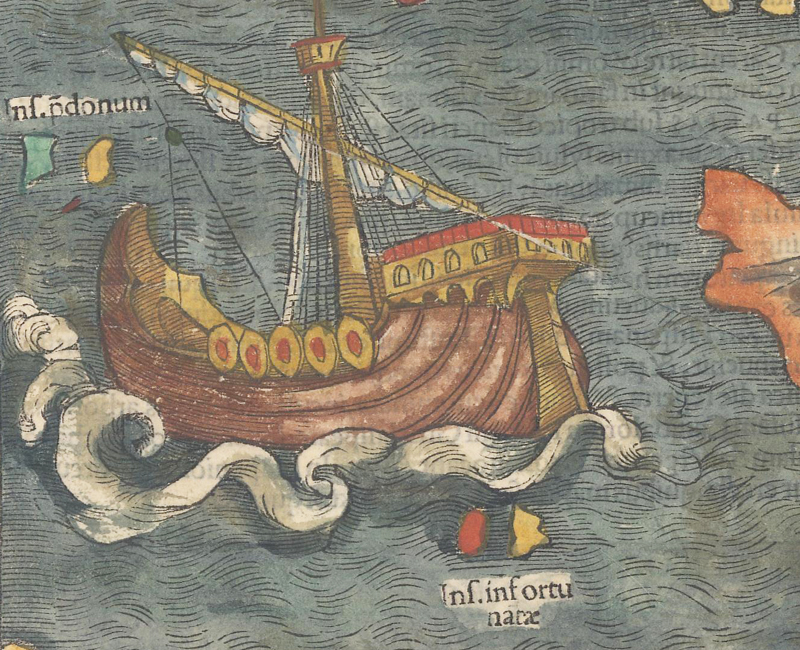 Inſ.p̄donum
Inſ.infortu
natæ